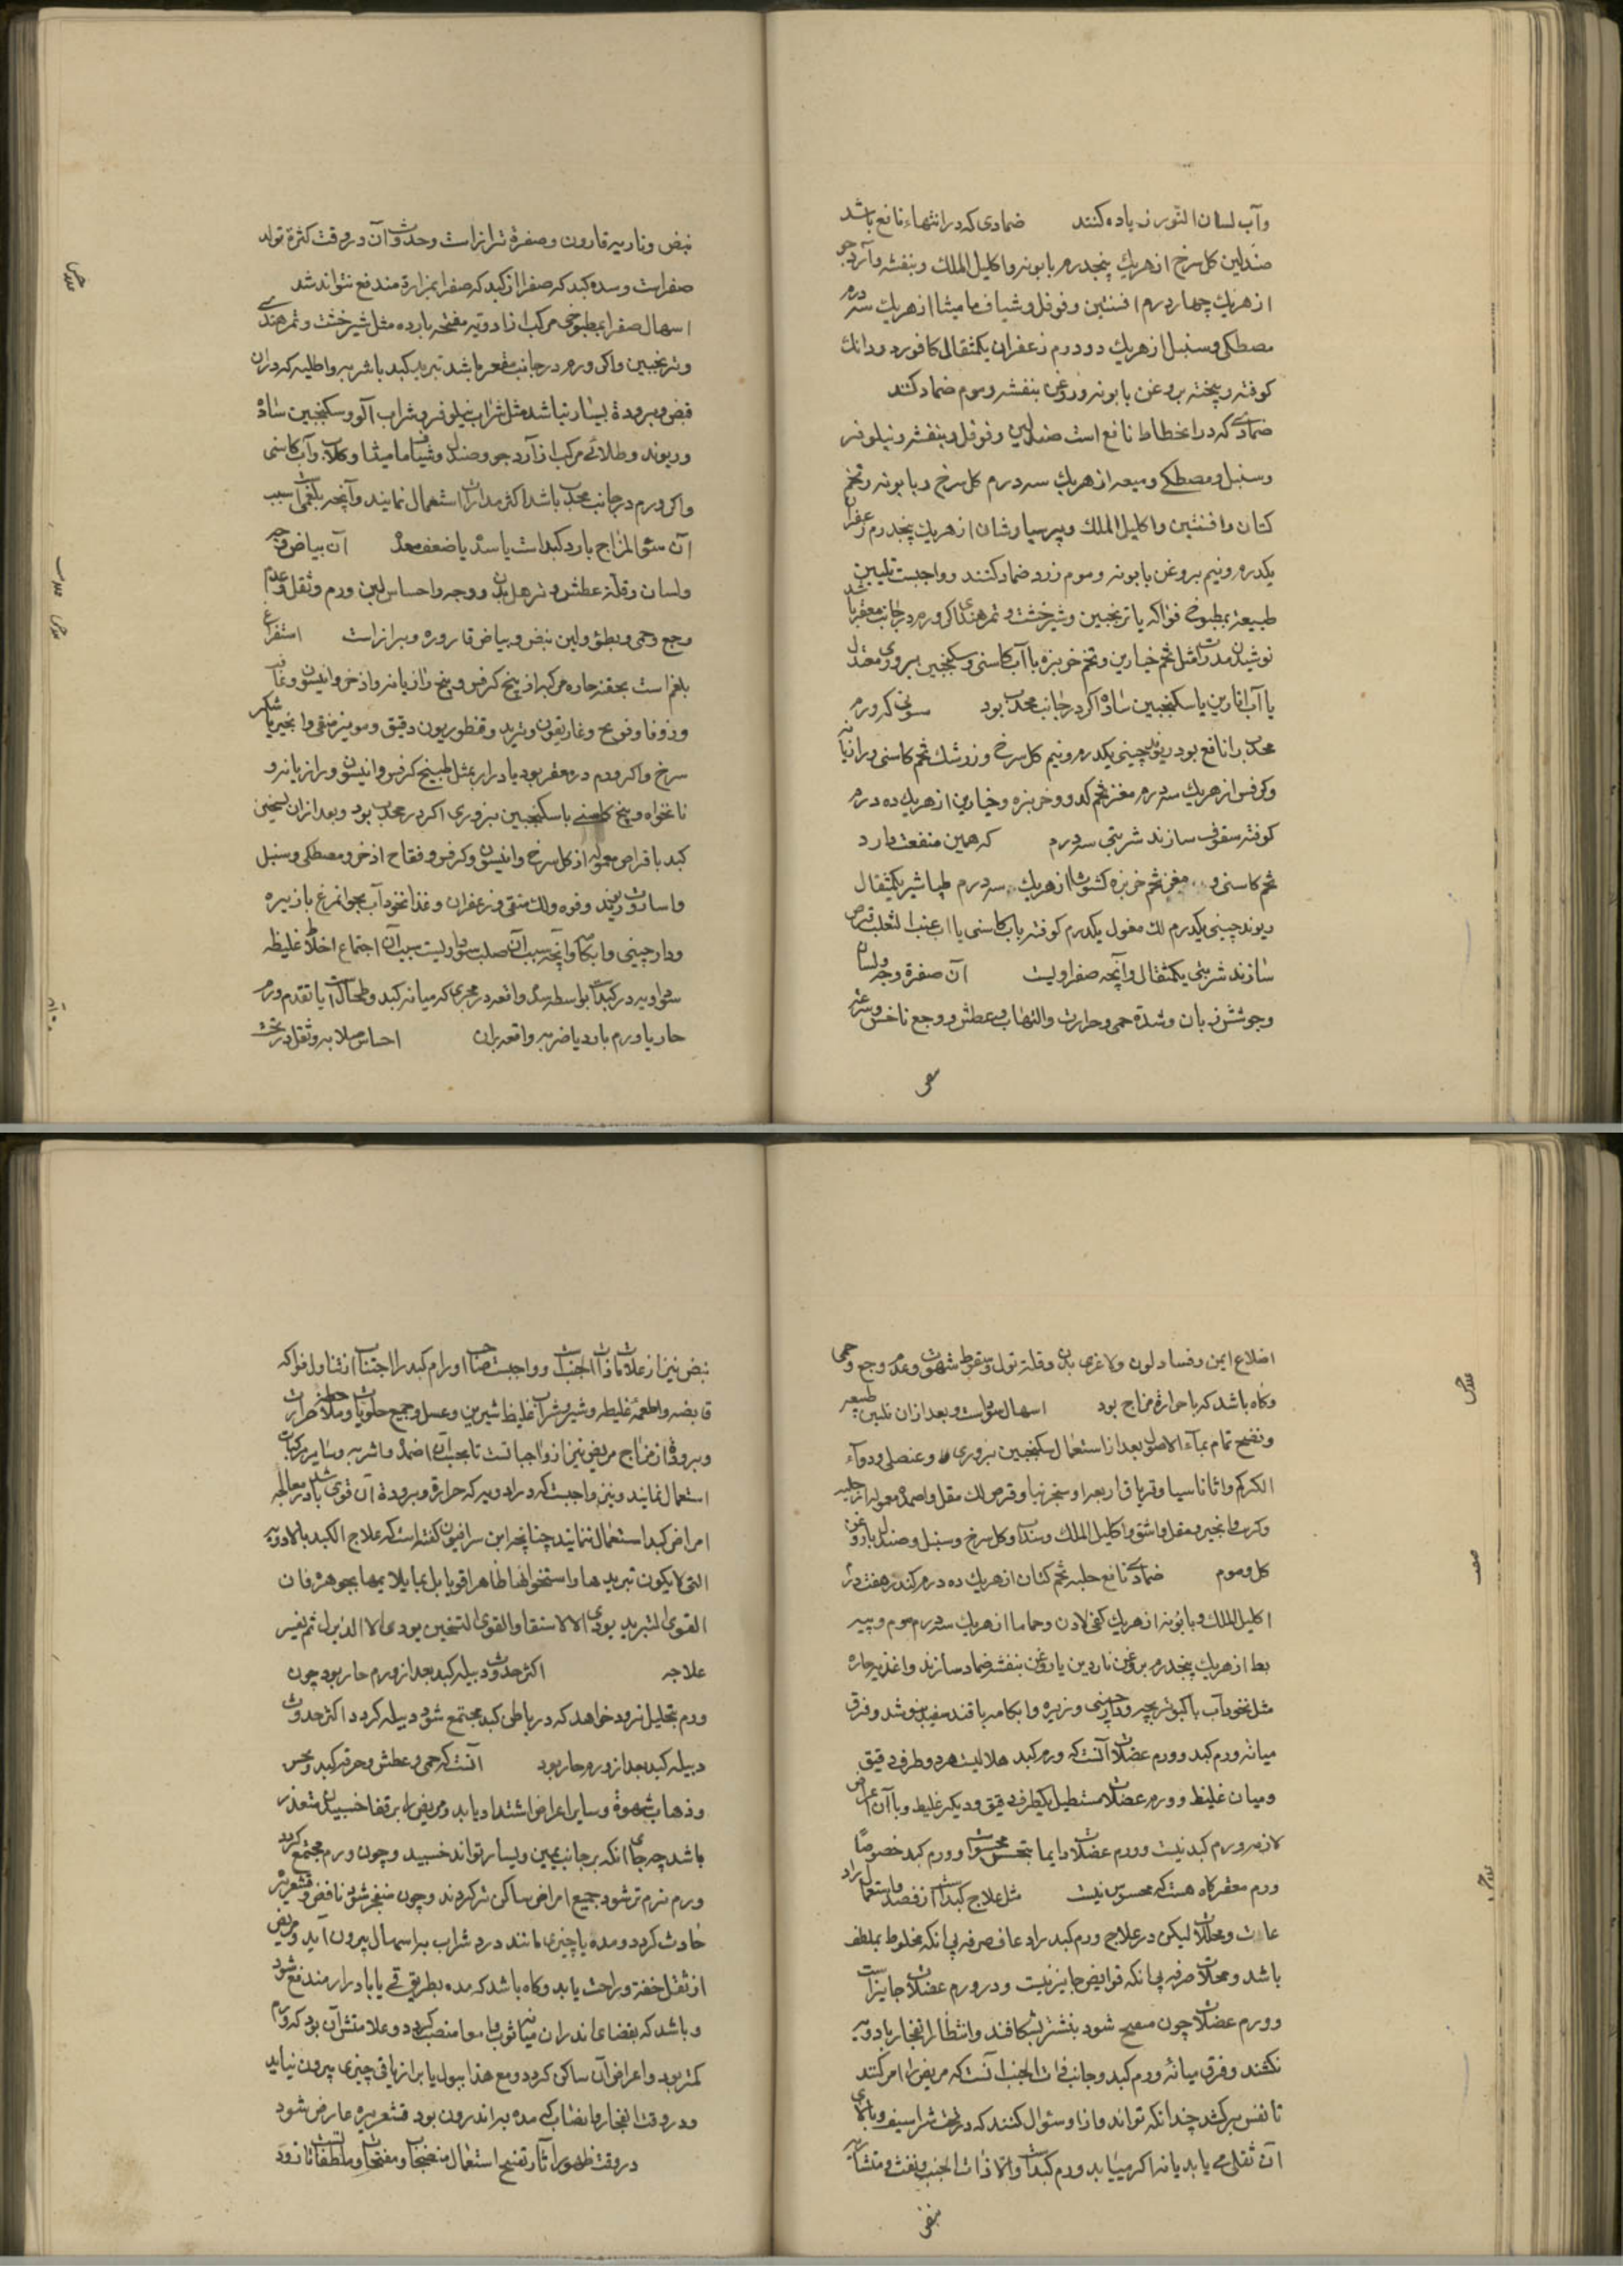 وآب لسان الثور زیاده کنند ضمادی که در انتهاء نافع باشد
صندلین کل سرخ از هریك پنجدرم بابونه واکلیل الملك وبنفشه وآرد جو
از هریك چهار درم افسنتین وفوفل وشیاف مامیثا از هریك سه درم
مصطکی وسنبل از هریك دو درم زعفران یکمثقال کافور دو دانك
کوفته وپخته بروغن بابونه وروغن بنفشه وموم ضماد کنند
ضمادے که در انحطاط نافع است صندلین وفوفل وبنفشه ونیلوفر
وسنبل ومصطکے ومیعه از هریك سه درم کل سرخ وبابونه وتخم
کتان وافسنتین واکلیل الملك وپرسیاوشان از هریك پنجدرم زعفران
یکدرم ونیم بروغن بابونه وموم زرد ضماد کنند وواجبست تلیین
طبیعة بمطبوخ فواکه یا ترنجبین وشیرخشت وتمرهندی اکر ورم در جانب مقعر باشد
نوشیدن مدرات مثل تخم خیارین وتخم خربزه با آب کاسنی وسکنجبین بزوری معتدل
یا آب انارین یا سکنجبین ساده اکر در جانب محدب بود سفوفی که ورم
محدب را نافع بود ریوند چینی یکدرم ونیم کل سرخ وزرشك تخم کاسنی ورازیانه
وکرفس از هریك سه درم مغز تخم کدو وخربزه وخیارین از هریك ده درم
کوفته سفوف سازند شربتی سه درم که همین منفعت دارد
تخم کاسنی و مغز تخم خربزه کشوث از هریك سه درم طباشیر یکمثقال
ریوند چینی یکدرم لك مغسول یکدرم کوفته باب کاسنی یا اب عنب الثعلب قرص
سازند شربتی یکمثقال وآنچه صفراویست آن صفرة وجه ولسان
وجوشش زبان وشدة حمی وحرارت والتهاب وعطش ووجع ناخس وسرعة
نبض وناریه قارون وصفرة برازاست وحدوث آن در وقت کثرة تولد
صفراست وسده کبد که صفرا از کبد که صفرا بمرارة مندفع نتواند شد
اسهال صفرا بمطبوخی مرکب از ادویه مفتحه بارده مثل شیرخشت وتمرهندے
وترنجبین واکر ورم در جانب مقعر باشد تبرید کبد باشربه واطلیه که دران
قبض وبرودة بسیار نباشد مثل شراب نیلوفر وشراب آلو وسکنجبین ساده
وریوند وطلائے مرکب از آرد جو وصندل وشیاف مامیثا وکلاب وآب کاسنی
واکر ورم در جانب محدب باشد اکثر مدرات استعمال نمایند وآنچه بلغمی است سبب
آن سوٴ المزاج بارد کبد است یا سده یا ضعف معده آن بیاض وجه
ولسان وقلة عطش وترهل بدن ووجه واحساس لین ورم وثقل وعدم
وجع وحمی وبطؤ ولین نبض وبیاض قاروره وبرازاست استفراغ
بلغم است بحقنه حاره مرکبه از بیخ کرفس وبیخ رازیانه واذخر وانیسون ونانخواه
وزوفا وفوتنج وغاریقون وتربد وقنطوریون دقیق ومویز منقی وانجیر با شکر
سرخ واکر ورم در مقعر بود یا درار بمثل طبیخ کرفس وانیسون ورازیانه و
نانخواه وبیخ کاسنے با سکنجبین بزوری اکر در محدب بود وبعد ازان تسخین
کبد باقراص معموله از کل سرخ وانیسون وکرفس وفقاح اذخر ومصطکی وسنبل
واسارون وریوند وفوه ولك منقی وزعفران وغذا نخود آب بجوانمرغ با زیره
ودارچینی وابکامه وآنچه سبب آن صلب سوداویست سبب آن اجتماع اخلاط غلیظه
سوداویه در کبد است بواسطه سده واقعه در مجری که میانه کبد وطحال است یا تقدم ورم
حار یا ورم بارد یا ضربه واقعه بران احساس صلابه وثقل در تحت
اضلاع ایمن وفساد لون ولاغری بدن وقلة بول وسقوط شهوت وعدم وجع وحمی
وکاه باشد که با حرارة مزاج بود اسهال سوداست وبعد ازان تلیین طبیعه
ونضج تمام بماء الاصول بعد از استعمال سکنجبین بزوری وعنصلی ودواء
الکرکم واثاناسیا وتریاق اربعه او سنجرنیا وقرص لك مقل واضمده معموله از حلبه
وکرنب وانجیر ومقل واشق واکلیل الملك وسداب وکل سرخ وسنبل وصندل با روغن
کل وموم ضمادے نافع حلبه تخم کتان از هریك ده درم کندر هفت درم
اکلیل الملك وبابونه از هریك کفی لادن وحماما از هریك سه درم موم وپیه
بط از هریك پنجدرم بروغن ناردین یا روغن بنفشه ضماد سازند واغذیه حاره
مثل نخودآب با کبوتر بچه ودارچینی وزیره وابکامه با قند سفید بنوشد وفرق
میانه ورم کبد وورم عضلات آنست که ورم کبد هلالیست هردو طرف دقیق
ومیان غلیظ وورم عضلات مستطیل یکطرف دقیق ودیکر غلیظ وبا آن اعراض
لازمه ورم کبد نیست وورم عضلات دایما بحس محسوس شود وورم کبد خصوصا
ورم مقعر کاه هست که محسوس نیست مثل علاج کبداست از فصد واستعمال راد
عات ومحللات لیکن در علاج ورم کبد رادعات صرفه بی انکه مخلوط بملطف
باشد ومحللات صرفه بی انکه قوابض جایز نیست ودر ورم عضلات جایزاست
وورم عضلات چون منفتح شود بنشتر بشکافند وانتظار انفجار بادویه
نکشند وفرق میانه ورم کبد وجانب ذات الجنب انست که مریض را امر کنند
تا نفس برکشد چندانکه تواند وازاو سئوال کنند که در تحت شراسیف وبالای
آن ثقلی مے یابد یا نه اکر میابد ورم کبداست والا ذات الجنب ونفث ومنشاریه
نبض
نبض نیز از علامات ذات الجنب است وواجبست صاحب اورام کبد را اجتناب از تناول فواکه
قابضه واطعمه غلیظه وشیر وشراب غلیظ شیرین وعسل وجمیع حلویات وملاحظه حرارت
وبرودة از مزاج مریض نیز از واجبات است تا بحسب آن اضمده واشربه وسایر مرکبات
استعمال نمایند ونیز واجبست که در ادویه که حرارة وبرودة آن قوی باشد در معالجه
امراض کبد استعمال ننمایند چنانچه ابن سرافیون کفته است که علاج الکبد بالادویه
التی لا یکون تبریدها واسخوانها ظاهرا قویا بل بما یلایمها بجوهره فان
القوی التبرید یودی الی الاستسقا والقوی التسخین یودی الی الذبول ثم نفسر
علاجه اکثر حدوث دبیله کبد بعد از ورم حار بود چون
ورم بتحلیل نرود خواهد که در باطن کبد مجتمع شود دبیله کردد اکثر حدوث
دبیله کبد بعد از ورم حار بود آنست که حمی وعطش وحرقه کبد ونخس
وذهاب شهوة وسایر اعراض اشتداد یابد ومریض را بر قفا خسبیدن متعذر
باشد چه جای انکه بر جانب یمین ویسار تواند خسبید وچون ورم مجتمع کردد
ورم نرم تر شود جمیع امراض ساکن تر کردند وچون منفجر شود نافض وقشعریره
حادث کردد ومده یا چیزی مانند درد شراب براسهال بیرون آید ومریض
از ثقل خفة وراحت یابد وکاه باشد که مده بطریق قے یا بادرار مندفع شود
وباشد که بفضای اندران میانه ثوب وامعا منصب کردد وعلامتش آن بود که ورم
کمتر بود واعراض آن ساکن کردد ومع هذا ببول یا براز یا قی چیزی بیرون نیاید
ودر وقت انفجار وانصباب که مده براندرون بود قشعریره عارض شود
در وقت ظهور آثار نضج استعمال منضجات ومفتحات وملطفات است تا زود